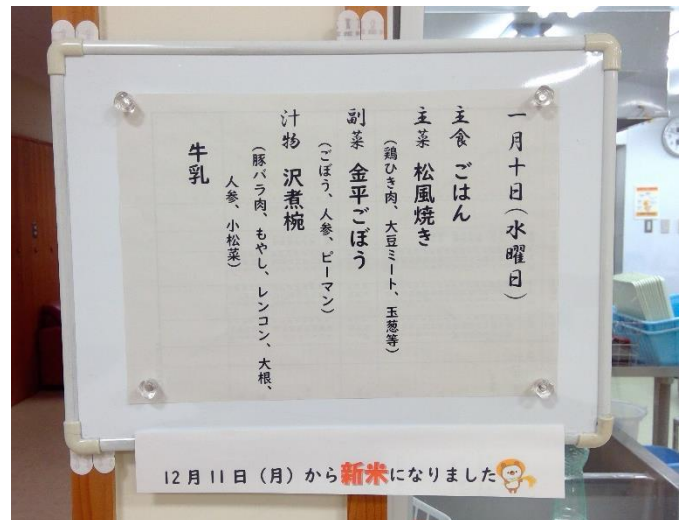 一月十日(水曜日)
主食 ごはん
主菜 松風焼き
(鶏ひき肉、大豆ミート、玉葱等)
副菜 金平ごぼう
(ごぼう、人参、ピーマン)
汁物 沢煮椀
(豚バラ肉、もやし、レンコン、大根、
人参、小松菜)
牛乳
12月11日(月)から新米になりました